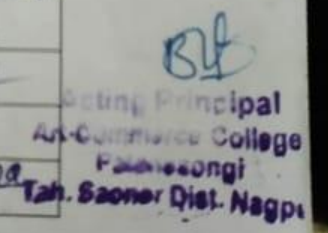 Acting Principal
Art-Commerce College
Tah. Saoner Dist. Nagpu